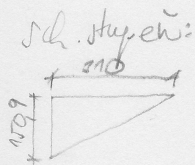 sch. stupeň:
310
150,9